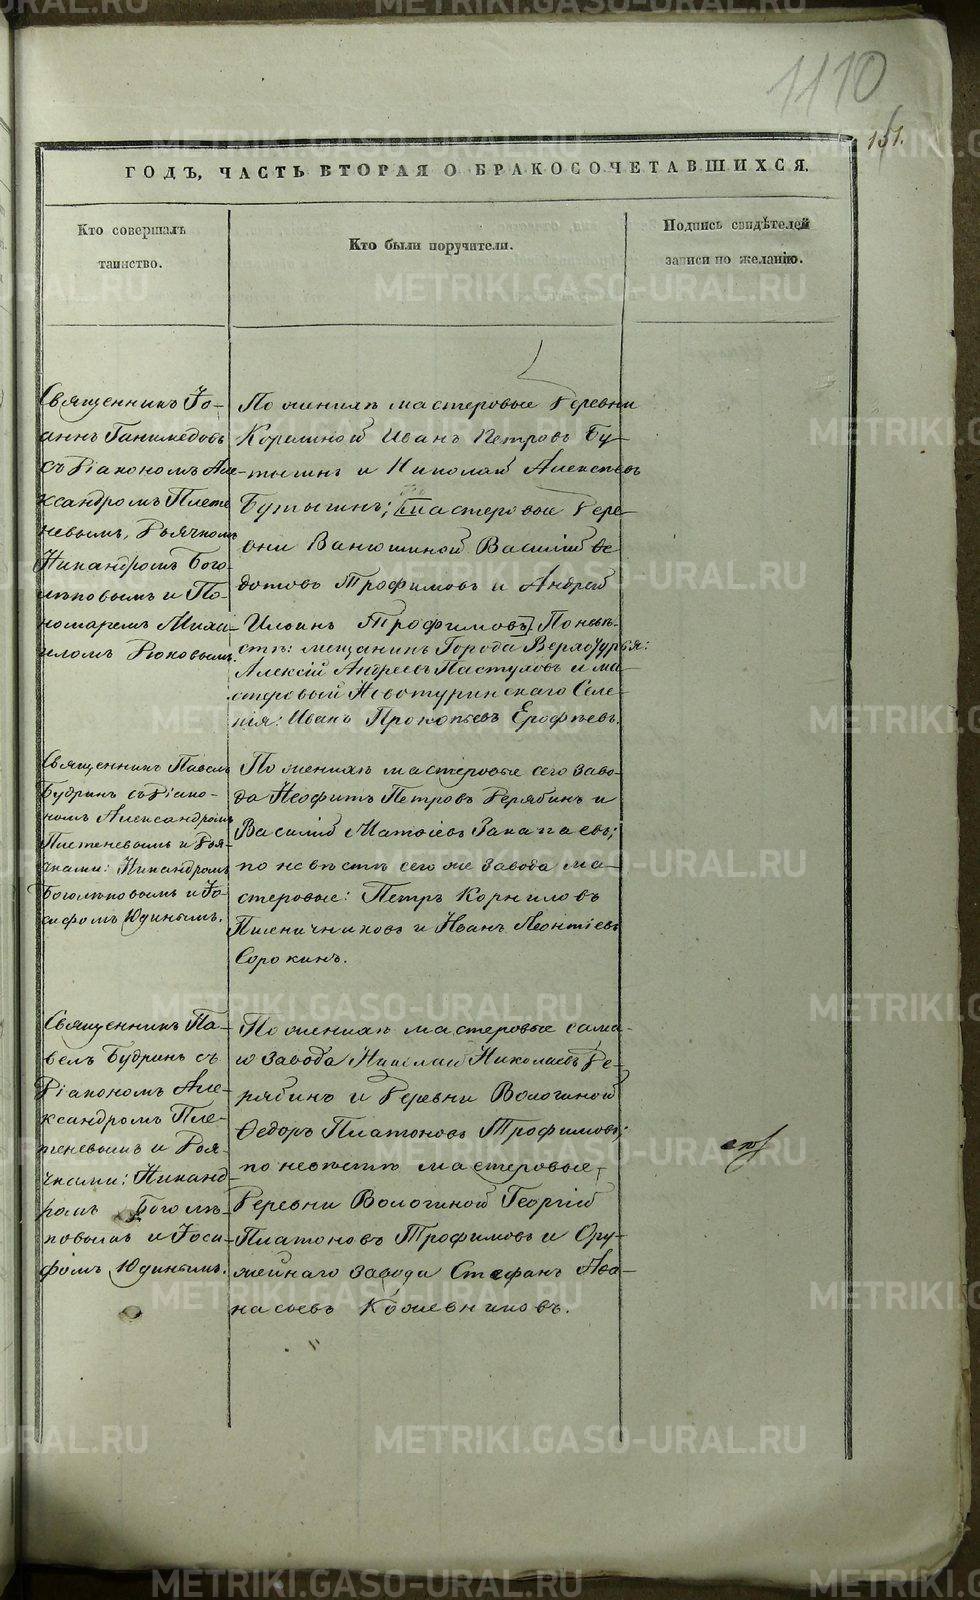 1110
151.
ГОДЪ, ЧАСТЬ ВТОРАЯ О БРАКОСОЧЕТАВШИХСЯ.
Кто совершалъ
таинство.
Кто были поручители.
Подпись свидѣтелей
записи по желанію.
Священникъ Іо-
аннъ Ганимедовъ
съ Діакономъ Але-
ксандромъ Плете
невымъ, Дьячкомъ
Никандромъ Бого
лѣповымъ и По-
номаремъ Миха-
иломъ Рюковымъ.
По женихѣ мастеровые Деревни
Корелиной Иванъ Петровъ Бу-
тыгинъ и Николай Алексѣевъ
Бутыгинъ; мастеровые Дере-
вни Ванюшиной Василій Ѳе
дотовъ Трофимовъ и Андрей
Ильинъ Трофимовъ. По невѣ-
стѣ: мещанинъ Города Верхотурья:
Алексій Андреевъ Пастуховъ и ма-
стеровый Невотуринскаго Селе-
нія: Иванъ Прокопьевъ Ерофѣевъ.
Священникъ Павелъ
Будринъ съ Діако-
номъ Александромъ
Плетеневымъ и Дья-
чками: Никандромъ
Боголѣповымъ и Іо-
сифомъ Юдинымъ.
По женихѣ мастеровые сего заво-
да Неофитъ Петровъ Дерябинъ и
Василій Матѳіевъ Закатаевъ;
по невѣстѣ сего же завода ма-
стеровые: Петръ Корниловъ
Пшеничниковъ и Иванъ Леонтіевъ
Сорокинъ.
Священникъ Па-
велъ Будринъ съ
Діакономъ Але-
ксандромъ Пле-
теневымъ и Дья-
чками: Никанд-
ромъ Боголѣ-
повымъ и Іоси-
фомъ Юдинымъ.
По женихѣ мастеровые сама-
го завода Николай Николаевъ Де-
рябинъ и Деревни Вологиной
Ѳедоръ Платоновъ Трофимовъ;
по невѣстѣ мастеровые,
Деревни Вологиной Георгій
Платоновъ Трофимовъ и Ору-
жейнаго завода Стефанъ Аѳа-
насьевъ Кожевниковъ.
METRIKI.GASO-URAL.RU